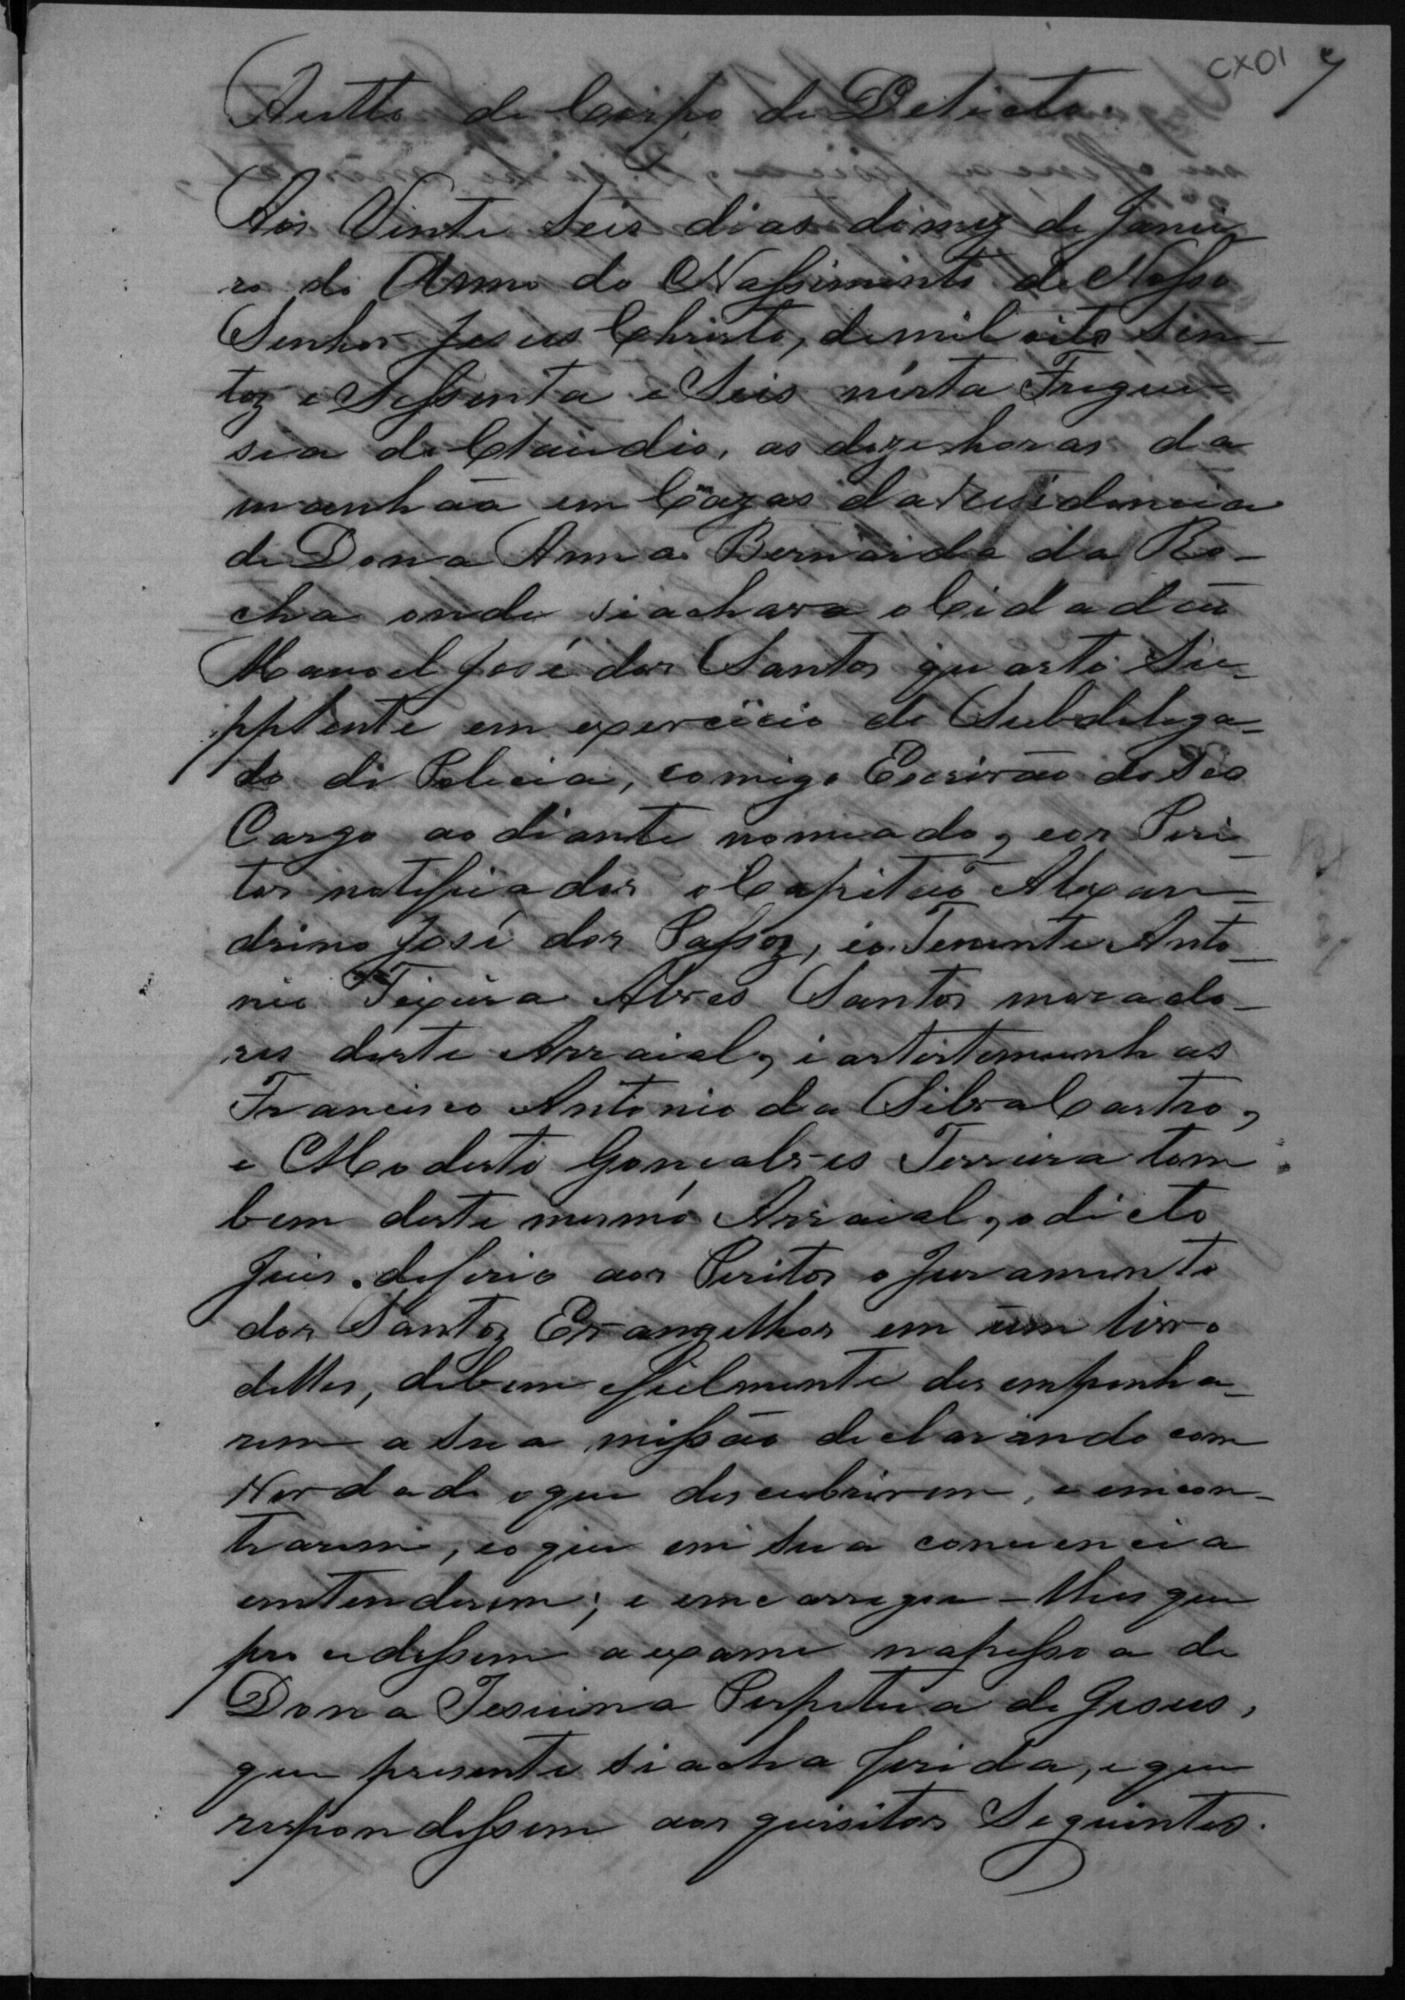 CX01 7
Autto de Corpo de Delicto.
Aos Vinte Seis dias do mez de Janei
ro do Anno do Nassimento de Nosso
Senhor Jesus Christo, de mil oito Sen-
toz e Sessenta e Seis nésta Fregue-
sia de Claudio, as deze horas da
manhãa em Cazas da rezidencia
de Dona Anna Bernarda da Ro-
cha onde si achava o Cidadão
Manoel José dos Santos quarto Su-
pplente em exercicio de Subdelega-
do de Policia, comigo Escrivão do Seo
Cargo ao diante nomeado, eos Peri-
tos notificados o Capitão Alexan-
drino José dos Passoz, eo Tenente Anto-
nio Teixeira Alves Santos morado-
res deste Arraial, i as testemunhas
Francisco Antonio da Silva Castro,
e Modesto Gonçalves Ferreira tam
bem deste mesmo Arraial, o dicto
Juis. deferio aos Peritos o Juramento
dos Santoz Evangelhos em um livro
delles, debem efielmente desempenha-
rem a sua missão declarando com
Verdade oque descubrirem, e emcon-
trarem, eo que em sua conciencia
emtenderem; e emcarregou-lhes que
procedessem a exame na pessoa de
Dona Jesuina Perpetua de Jesus,
que presente si acha ferida, e que
respondessem aos quisitos Seguintes.